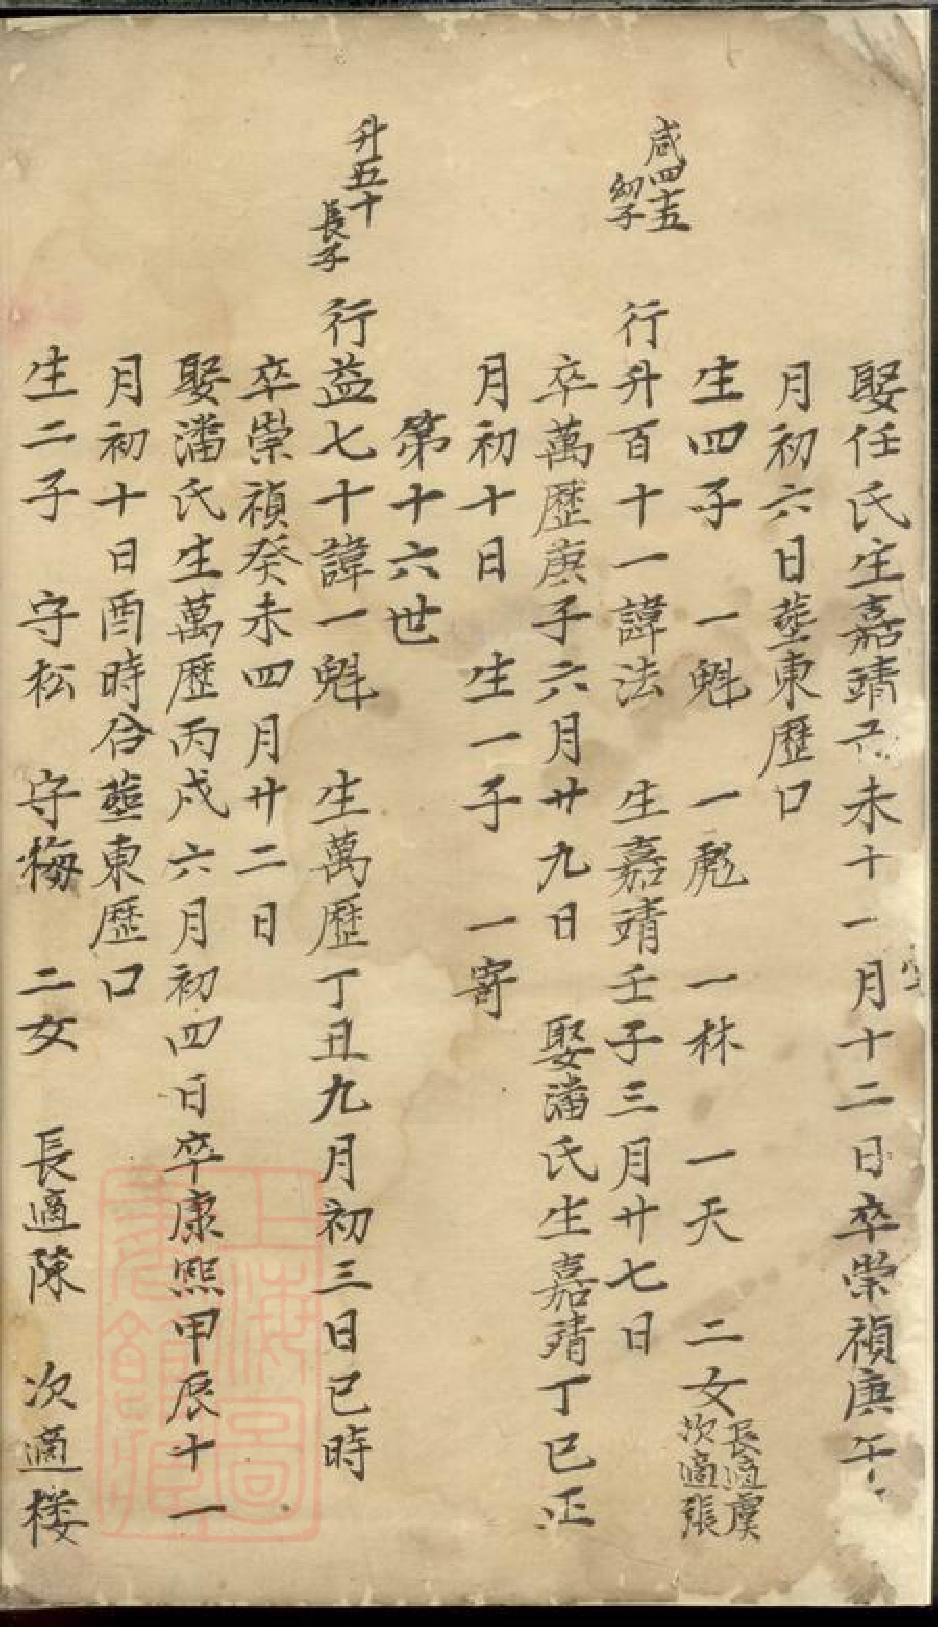 娶任氏生嘉靖乙未十一月十二日卒崇禎庚午
月初六日塟東歷口
生四子 一魁 一彪 一林 一天 二女 長適虞 次適張
咸四十五
幼子
行升百十一諱法 生嘉靖壬子三月廿七日
卒萬歷庚子六月廿九日 娶潘氏生嘉靖丁巳正
月初十日 生一子 一寄
第十六世
升五十
長子
行益七十諱一魁 生萬歷丁丑九月初三日巳時
卒崇禎癸未四月廿二日
娶潘氏生萬歷丙戍六月初四日卒康熙甲辰十一
月初十日酉時合塟東歷口
生二子 守松 守梅 二女 長適陳 次適楼
上海圖
書館藏